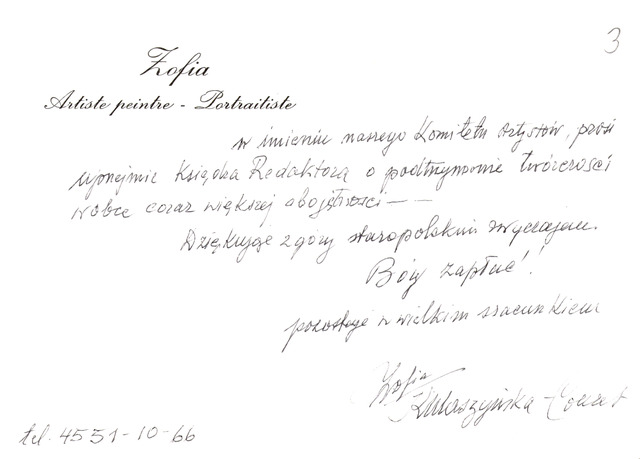 3
Zofia
Artiste peintre - Portraitiste
w imieniu naszego Komitetu Artystów, prosi
uprzejmie Księdza Redaktora o podtrzymanie twórczości
wobec coraz większej obojętności - -
Dziękuję z góry staropolskim zwyczajem.
Bóg zapłać!
pozostaję w wielkim szacunkiem
Zofia
tel. 4551-10-66